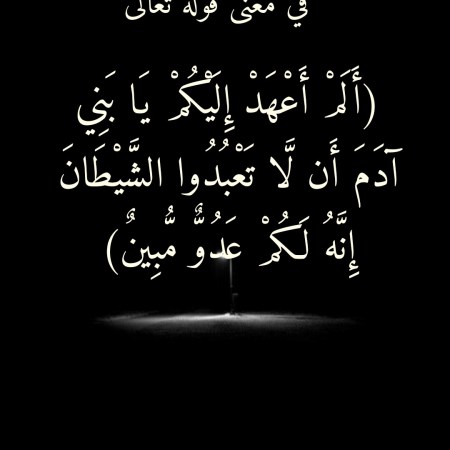 في معنى قوله تعالى
(أَلَمْ أَعْهَدْ إِلَيْكُمْ يَا بَنِي
آدَمَ أَن لَّا تَعْبُدُوا الشَّيْطَانَ
إِنَّهُ لَكُمْ عَدُوٌّ مُّبِينٌ)